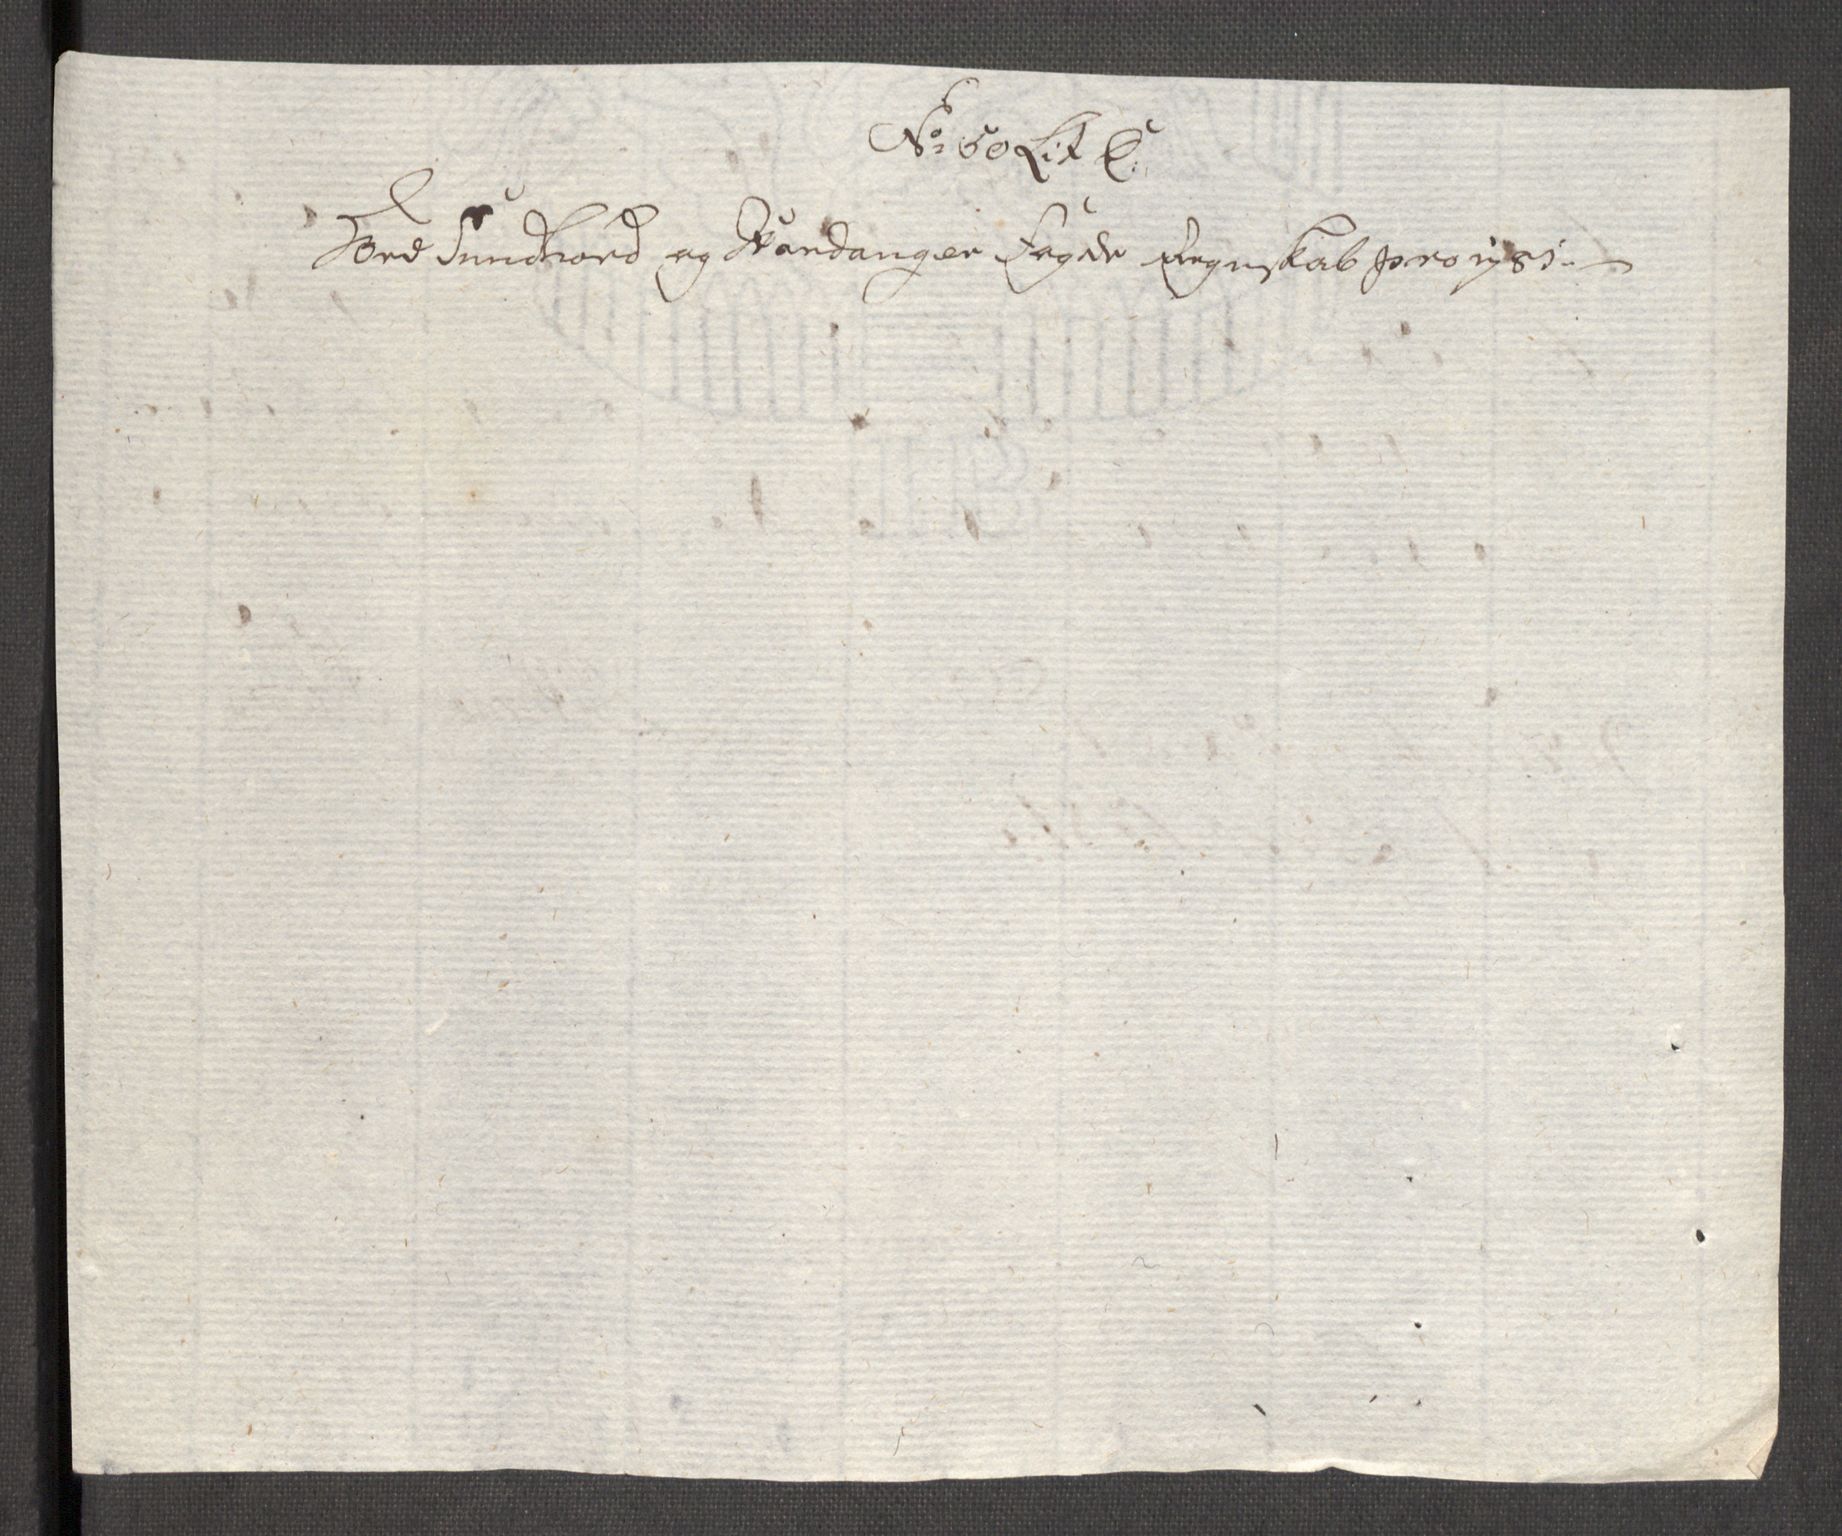 No: 50 Lit C:
Ved Sundhord og Hardanger Fogderie Regnskab pro 1781.